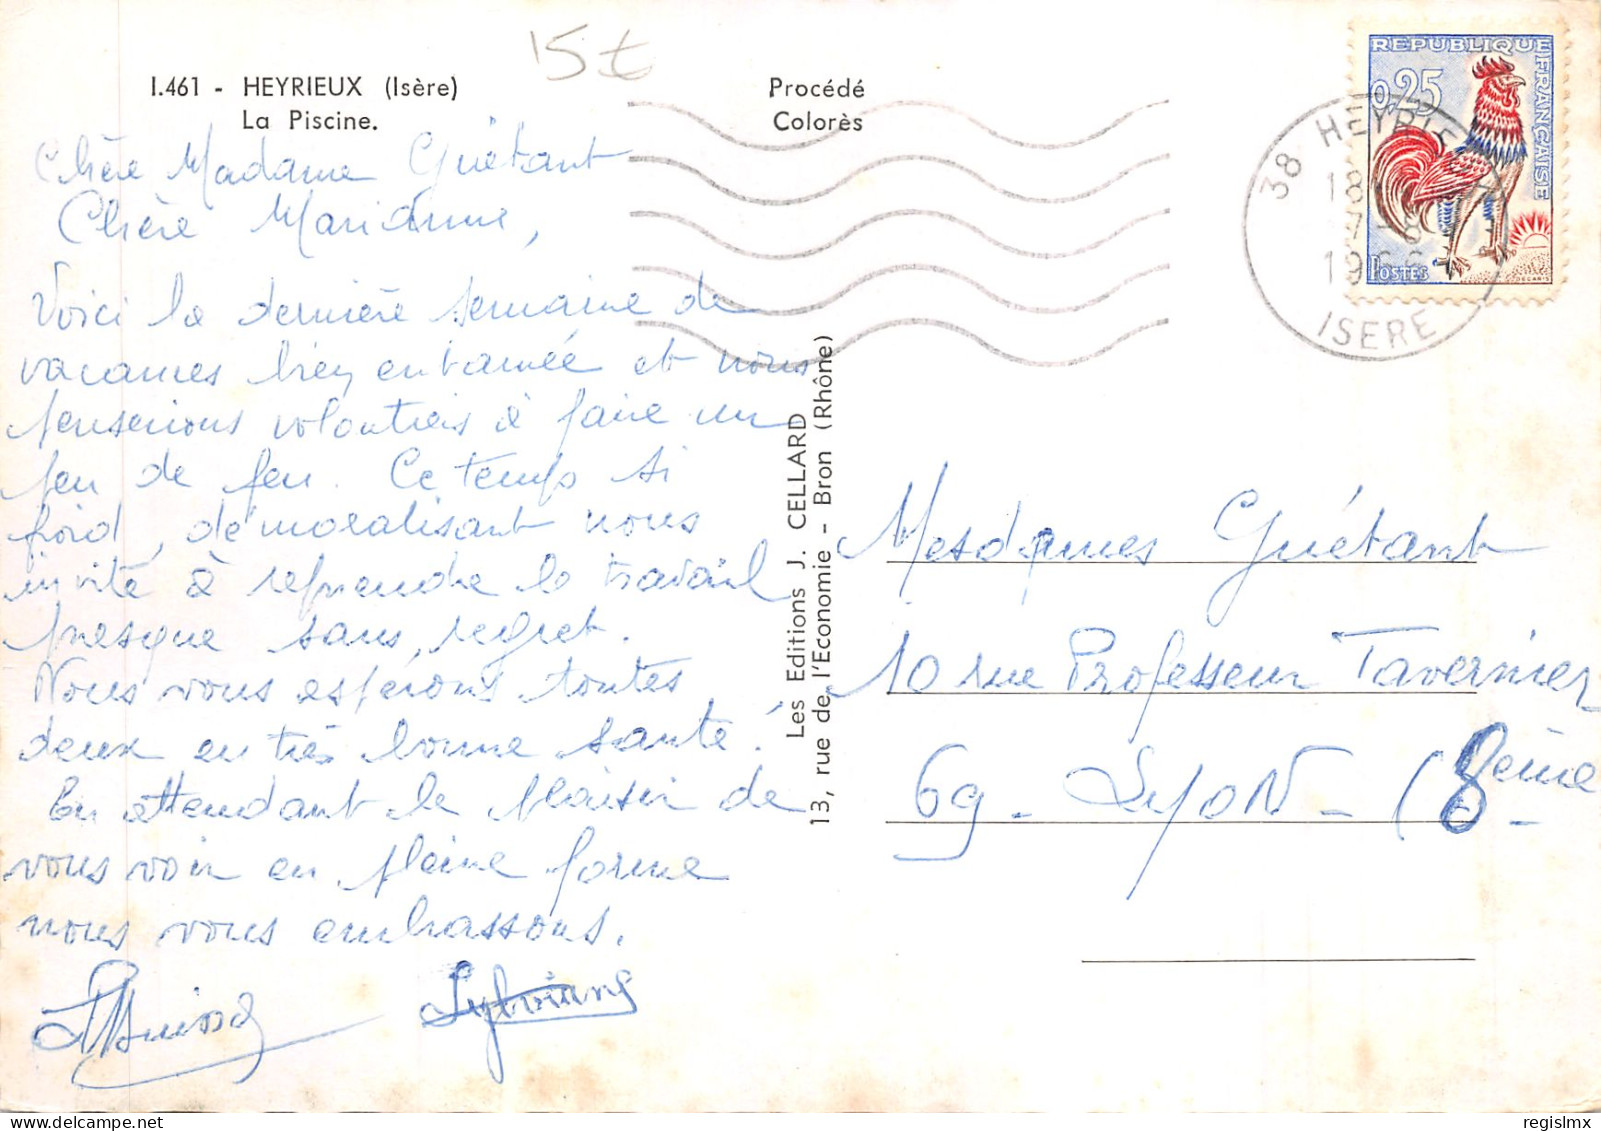 15€
I.461 - HEYRIEUX (Isère)
La Piscine.
Procédé
Colorès
REPUBLIQUE
FRANÇAISE
0,25
POSTES
DECARIS
38 HEYRIE
18
7 - 8
1966
ISERE
Chère Madame Guétant
Chère Marianne,
Voici la dernière semaine de
vacances bien entamée et nous
penserions volontiers à faire un
peu de feu. Ce temps si
froid, démoralisant nous
invite à reprendre le travail
presque sans regret.
Nous vous espérons toutes
deux en très bonne santé.
En attendant le plaisir de
vous voir en pleine forme
nous vous embrassons.
Sylviane
Les Editions J. CELLARD
13, rue de l'Economie - Bron (Rhône)
Mesdames Guétant
10 rue Professeur Tavernier
69 - LYON - (8ème
regislmx